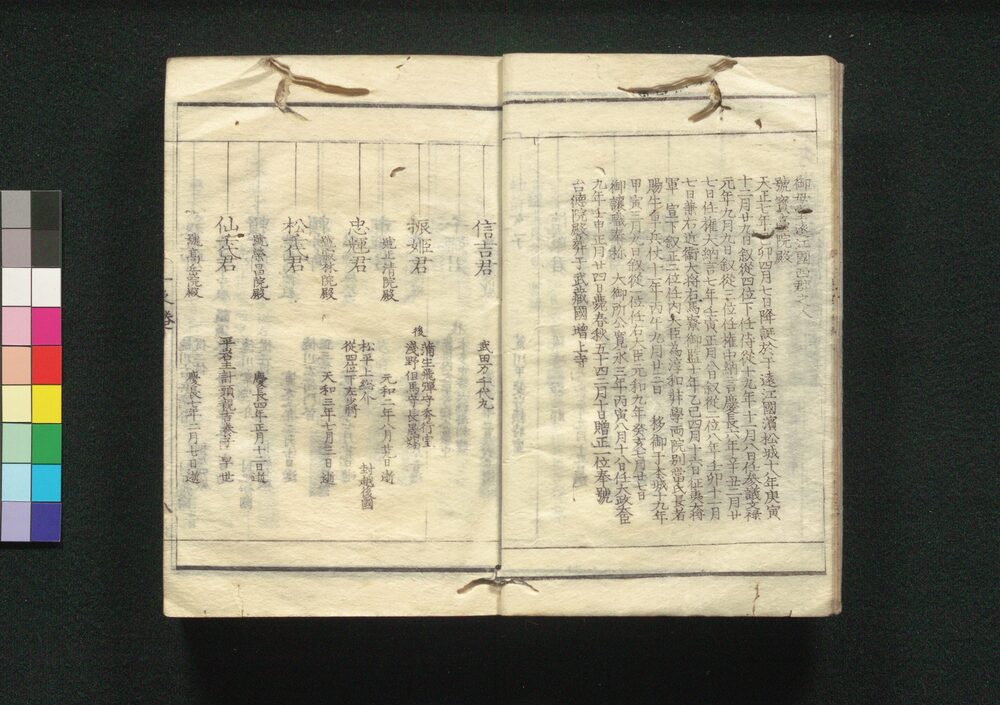 御母堂遠江國西郡之人
號寳臺院殿
天正七年己卯四月七日降誕於于遠江國濱松城十八年庚寅
十二月廿九日叙從四位下任侍從十九年十一月八日任參議文禄
元年九月九日叙從三位任權中納言慶長六年辛丑三月廿
七日任權大納言七年壬寅正月八日叙從二位八年壬卯十一月
七日兼右近衛大將右馬寮御監十年乙巳四月十六日征夷大將
軍 宣下叙正二位任内大臣為淳和弉學両院別當氏長者
賜牛車兵仗十一年丙午九月廿三日 移御于本城十九年
甲寅三月九日叙從一位任右大臣元和九年癸亥七月廿七日
御讓職奉称 大御所公寛永三年丙寅八月十八日任大政大臣
九年壬申正月廿四日薨春秋五十四二月十日贈正一位奉號
台德院殿葬于武藏國增上寺
信吉君 武田万千代丸
振姫君 蒲生飛彈守秀行室
後 淺野但馬守長晟嫁
號正清院殿 元和二年八月廿九日逝
忠輝君 松平上総介
從四位下左少將 封越後國
松千代君
號 院殿 天和三年七月三日逝
仙千代君
號 昌院殿 慶長四年正月十二日逝
平岩主計頭親吉養子 早世
號高岳院殿 慶長七年二月七日逝